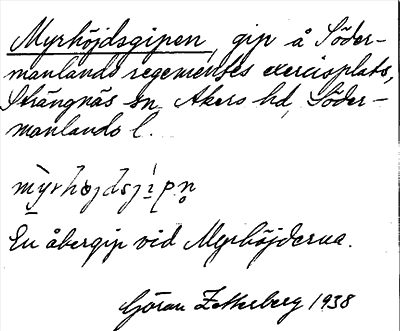 Myrhöjdsgipen, gip å Söder-
manlands regementes exercisplats,
Strängnäs sn, Åkers hd, Söder-
manlands l.
En åkergip vid Myrhöjderna.
Göran Zetterberg 1938